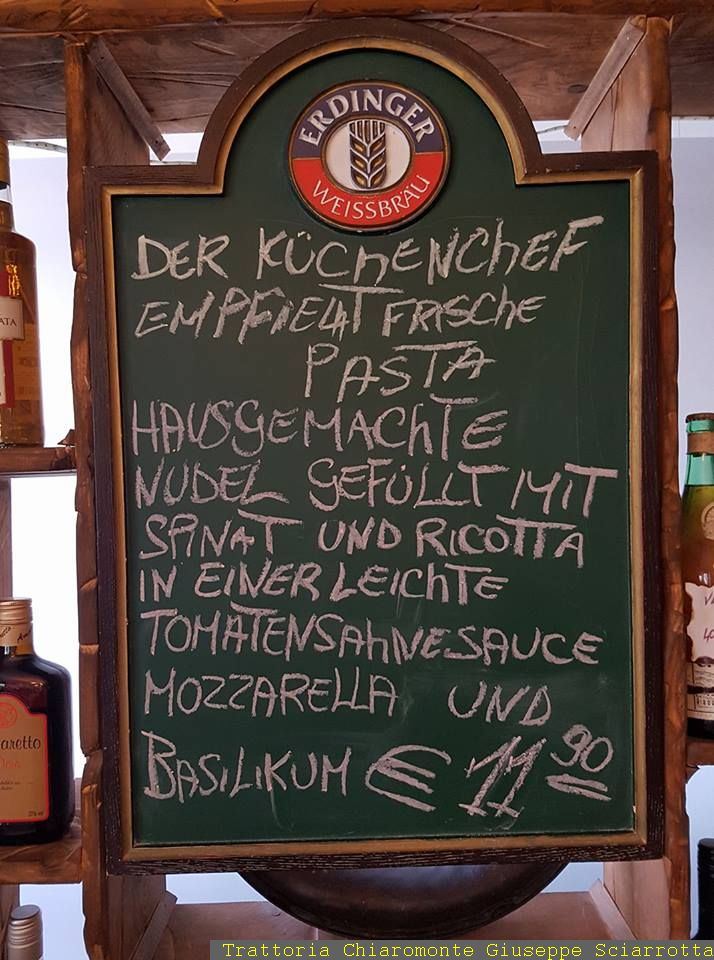 ERDINGER
WEISSBRÄU
DER KÜCHENCHEF
EMPFIELT FRISCHE
PASTA
HAUSGEMACHTE
NUDEL GEFÜLLT MIT
SPINAT UND RICOTTA
IN EINER LEICHTE
TOMATENSAHNESAUCE
MOZZARELLA UND
BASILIKUM € 11 90
ATA
aretto
Trattoria Chiaromonte Giuseppe Sciarrotta